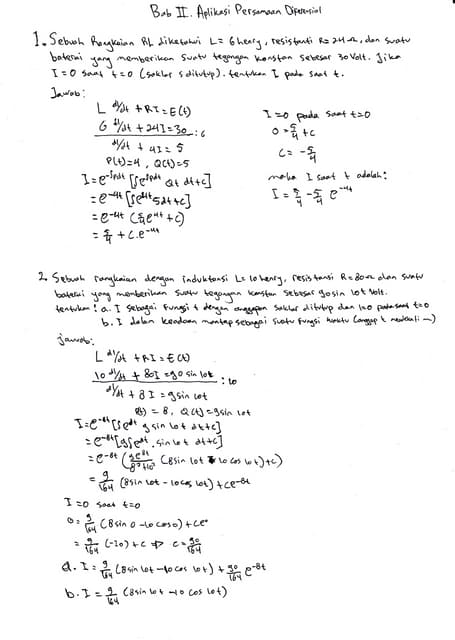 Bab II. Aplikasi Persamaan Diferensial
1. Sebuah Rangkaian RL diketahui L = 6 henry, resistansi R = 24 Ω, dan suatu
baterai yang memberikan suatu tegangan konstan sebesar 30 Volt. Jika
I = 0 saat t = 0 (saklar s ditutup). tentukan I pada saat t.
Jawab:
L dI/dt + RI = E(t)
6 dI/dt + 24I = 30 : 6
dI/dt + 4I = 5
P(t) = 4, Q(t) = 5
I = e^-∫pdt [∫e^∫pdt Qt dt + c]
= e^-4t [∫e^4t 5dt + c]
= e^-4t (5/4 e^4t + c)
= 5/4 + c.e^-4t
I = 0 pada saat t = 0
0 = 5/4 + c
c = -5/4
maka I saat t adalah:
I = 5/4 - 5/4 e^-4t
2. Sebuah rangkaian dengan induktansi L = 10 henry, resistansi R = 80 Ω dan suatu
baterai yang memberikan suatu tegangan konstan sebesar 90 sin 10t Volt.
tentukan: a. I sebagai fungsi t dengan anggapan saklar ditutup dan I=0 pada saat t=0
b. I dalam keadaan mantap sebagai suatu fungsi waktu
Jawab:
L dI/dt + RI = E(t)
10 dI/dt + 80I = 90 sin 10t : 10
dI/dt + 8I = 9 sin 10t
P(t) = 8, Q(t) = 9 sin 10t
I = e^-8t [∫e^8t 9 sin 10t dt + c]
= e^-8t [9∫e^8t. sin 10t dt + c]
= e^-8t (9e^8t/8²+10² (8 sin 10t - 10 cos 10t) + c)
= 9/164 (8 sin 10t - 10 cos 10t) + ce^-8t
I = 0 saat t = 0
0 = 9/164 (8 sin 0 - 10 cos 0) + ce⁰
= 9/164 (-10) + c ⇒ c = 90/164
a. I = 9/164 (8 sin 10t - 10 cos 10t) + 90/164 e^-8t
b. I = 9/164 (8 sin 10t - 10 cos 10t)